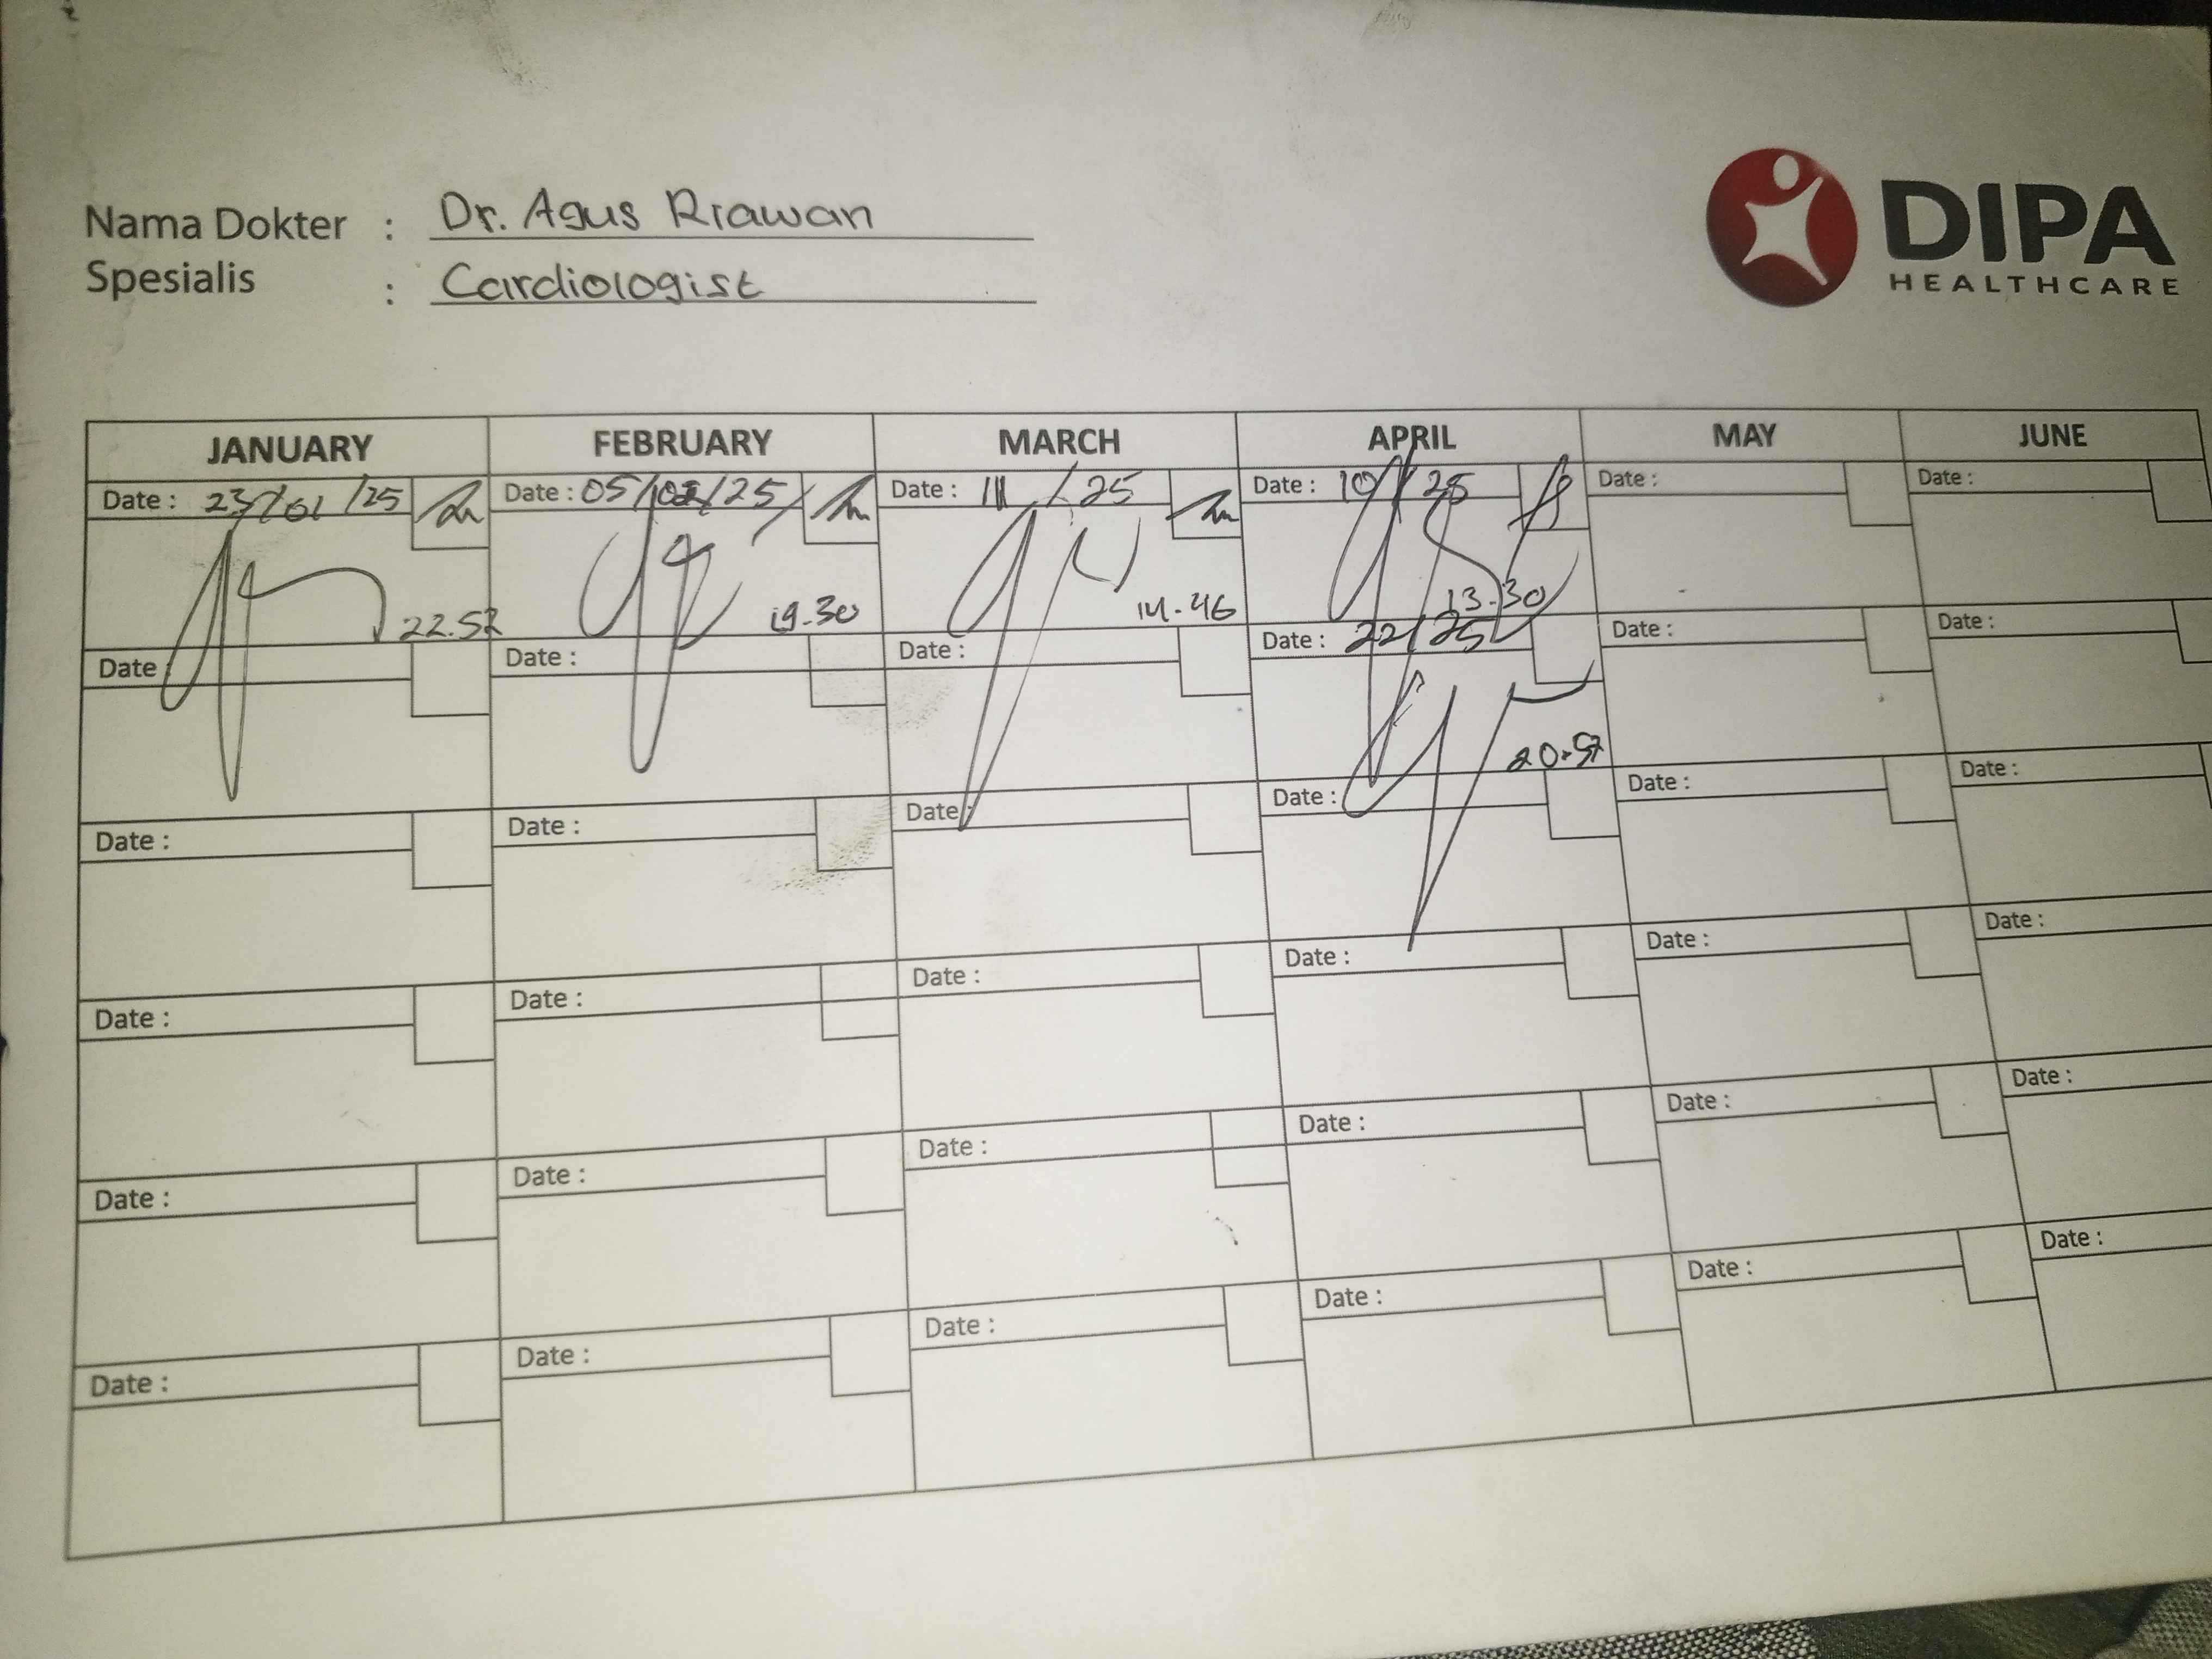 Nama Dokter : Dr. Agus Riawan
Spesialis : Cardiologist
DIPA
HEALTHCARE
JANUARY FEBRUARY MARCH APRIL MAY JUNE
Date : 23/01/25 Date : 05/02/25 Date : 11/25 Date : 10/25 Date : Date :
22.52 19.30 14.46 13.30
Date : Date : Date : Date : 22/25 Date : Date :
20.57
Date : Date : Date : Date : Date : Date :
Date : Date : Date : Date : Date : Date :
Date : Date : Date : Date : Date : Date :
Date : Date : Date : Date : Date : Date :